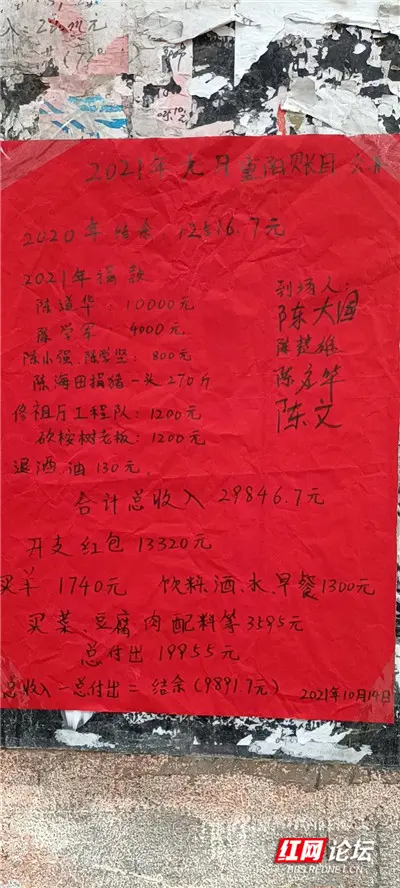 2021年元月重阳账目
2020年结余 12516.7元
2021年捐款
陈道华：10000元
陈学军：4000元
陈小强、陈学坚：800元
陈海田捐猪一头270斤
修祖厅工程队：1200元
砍桉树老板：1200元
退酒、酒130元
到场人：
陈大国
陈楚雄
陈宏华
陈文
合计总收入 29846.7元
开支 红包 13320元
买羊 1740元 饮料、酒、水、早餐1300元
买菜、豆腐、肉、配料等3595元
总付出 19955元
总收入－总付出＝结余（9891.7元）
2021年10月14日
红网论坛
BBS.REDNET.CN